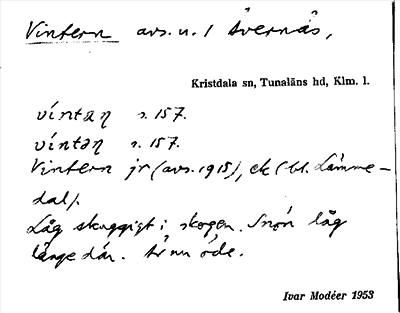 Vintern avs. u. / Åvernäs,
Kristdala sn, Tunaläns hd, Klm. l.
víntaɳ s. 157.
víntəɳ s. 157.
Vintern jr (avs. 1915), ek (bl. Lämme-
dal).
Låg skuggigt i skogen. Snön låg
länge där. Är nu öde.
Ivar Modéer 1953